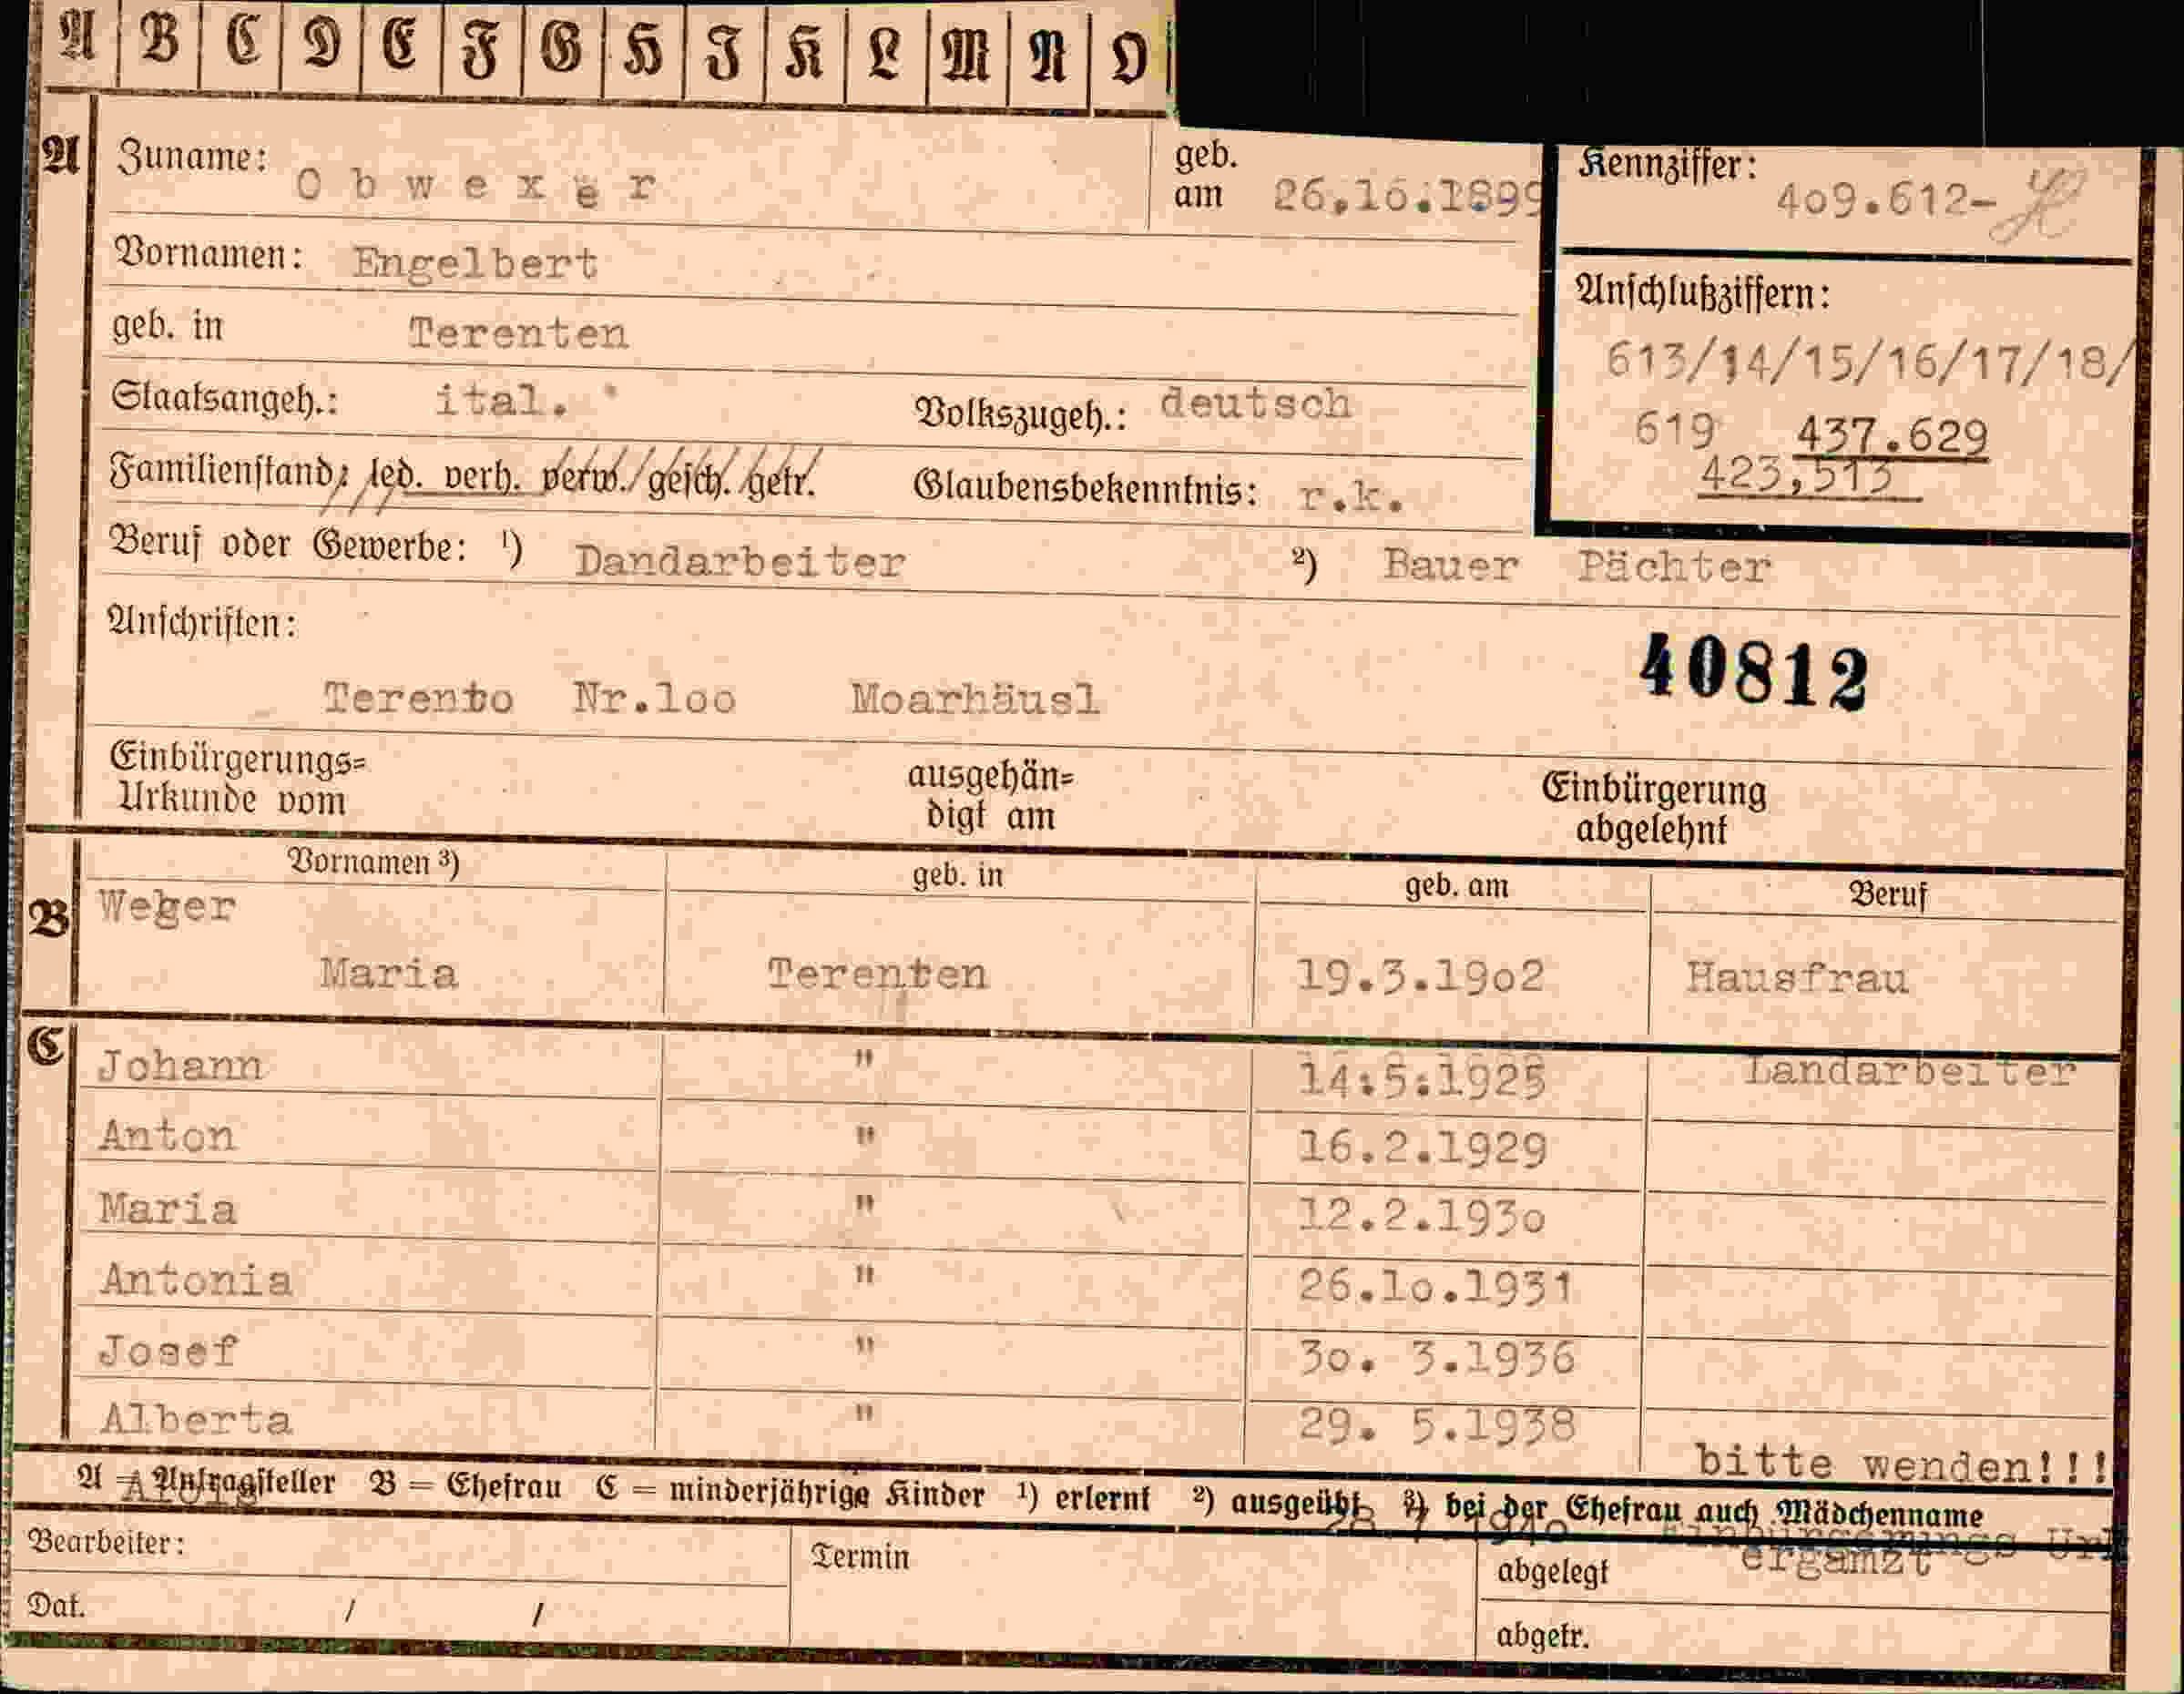 A B C D E F G H J K L M N O
A Zuname: Obwexer geb. am 26.10.1899 Kennziffer: 4o9.612-
Vornamen: Engelbert
Anschlußziffern:
geb. in Terenten
613/14/15/16/17/18/
Staatsangeh.: ital. Volkszugeh.: deutsch
619 437.629
423,513
Familienstand: led. verh. verw. gesch. getr. Glaubensbekenntnis: r.k.
Beruf oder Gewerbe: ¹) Dandarbeiter ²) Bauer Pächter
Anschriften:
40812
Terento Nr.loo Moarhäusl
Einbürgerungs=
Urkunde vom
ausgehän=
digt am
Einbürgerung
abgelehnt
Vornamen ³) geb. in geb. am Beruf
B Weger
Maria Terenten 19.3.19o2 Hausfrau
C Johann " 14.5.1925 Landarbeiter
Anton " 16.2.1929
Maria " 12.2.193o
Antonia " 26.lo.1931
Josef " 3o. 3.1936
Alberta " 29. 5.1938
bitte wenden!!!
A = Antragsteller B = Ehefrau C = minderjährige Kinder ¹) erlernt ²) ausgeübt ³) bei der Ehefrau auch Mädchenname
Einbürgerungs Urk
Bearbeiter: Termin abgelegt ergänzt
Dat. / /
abgetr.